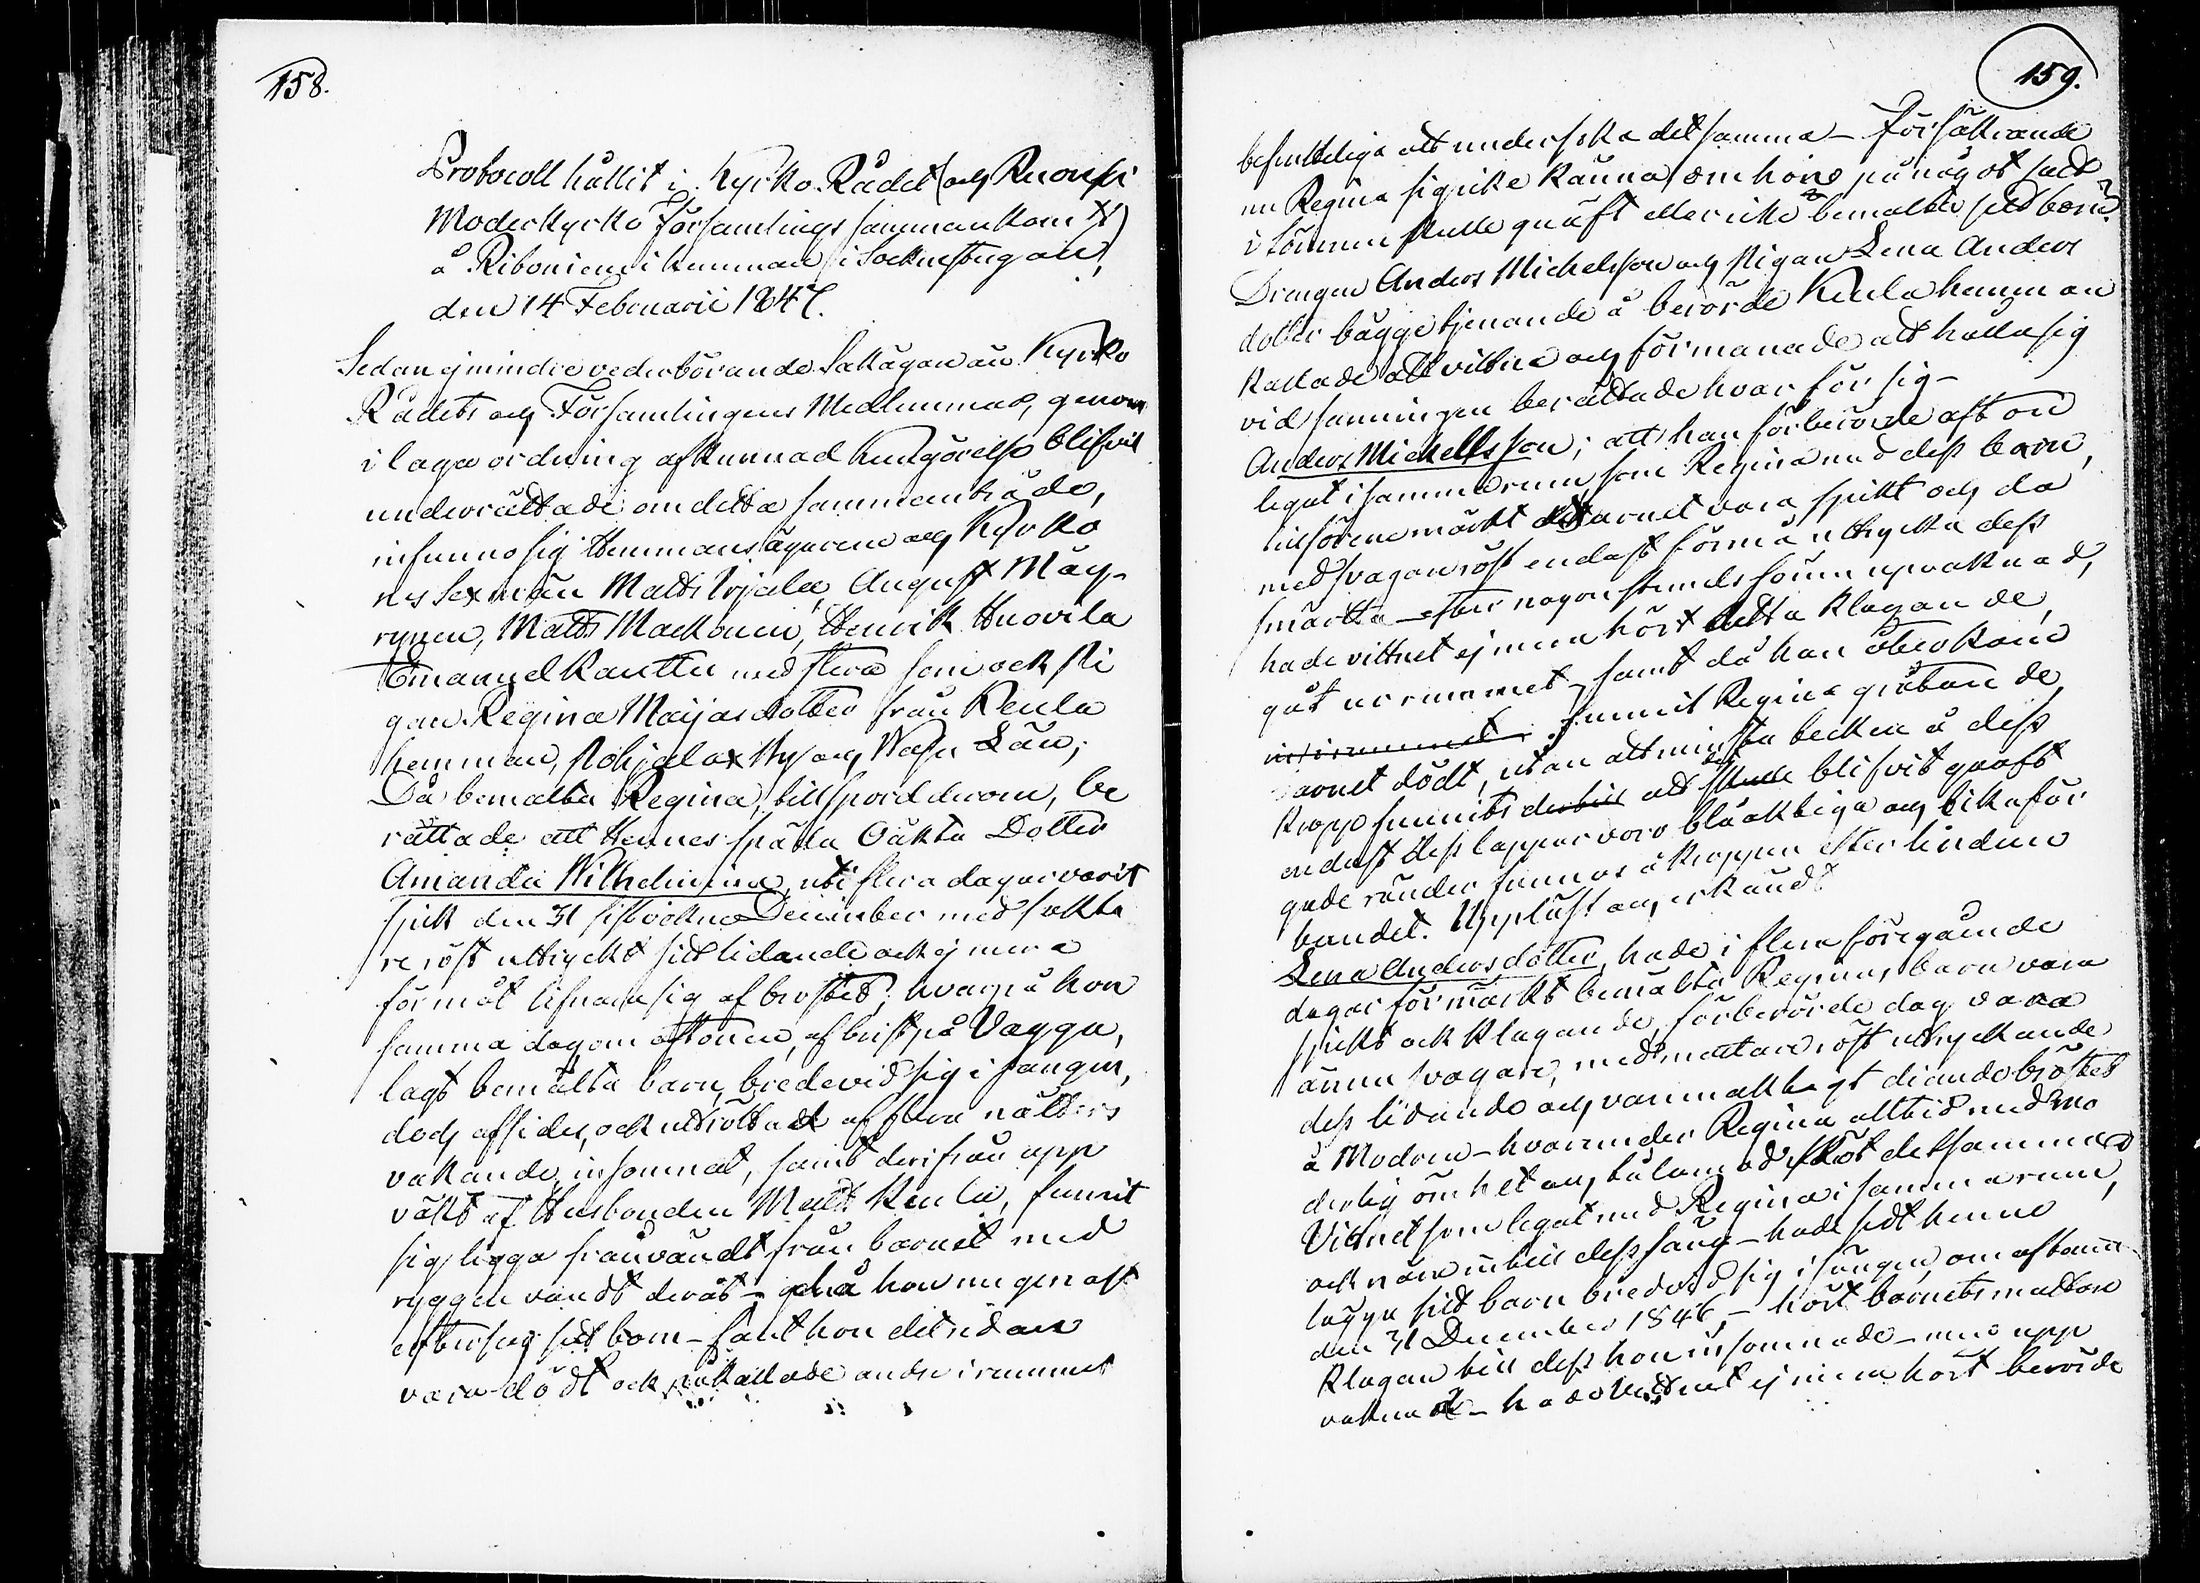 158.
Protocoll hållit i Kyrko Rådet (och Ruovesi
Moderkyrko Församlings sammankomst)
å Riboniemi hemman i Sockenstugan,
den 14 Februarii 1847.
Sedan ej mindre vederbörande Sakägare än Kyrko
Rådets och Församlingens Medlemmar, genom
i laga ordning afkunnad kungörelse blifvit
underrättade om detta sammanträde,
infunno sig Hemmansägarena och Kyrko
nes Sexmän Matts Irjala, August Mäy-
rynen, Matts Mackonen, Henrik Huovila
Emanuel Kauttu med flera som ock pi
gan Regina Maijasdotter från Keula
hemman, Pohjala by och Wasa Län;
Då bemälta Regina, tillspord derom, be
rättade att Hennes späda Oäkta Dotter
Amanda Wilhelmina, uti flera dagar varit
sjuk den 31 sistvekne December med sakta
re röst uttryckt sitt lidande och ej mera
förmåt lifnära sig af bröstet; hvarpå hon
samma dag om aftonen, af brist på Vagga,
lagt bemälta barn, bredevid sig i sängen,
doch afsides, och uttröttad af flera nätters
vakande insomnat, samt derifrån upp
väkt af Husbonden Matts Keula, funnit
sig ligga frånvändt från barnet med
ryggen vändt deråt - då hon nu genast
eftersåg sitt barn - fant hon det redan
vara dödt och påkallade andre i rummet
159.
befintteliga att undersöka det samma - Försäkrande
nu Regina sig icke känna om hon på något sätt
i sömnen skulle qväft eller icke bemälta sitt barn?
Drengen Anders Michelsson och pigan Lena Anders
dotter bägge tjenande å berörde Keula hemman
kallade att vittna och förmanade att hålla sig
vid sanningen berättade hvar för sig -
Anders Michellsson; att han förberörde afton
legat i samma rum som Regina med dess barn,
införene märkt barnet vara sjukt och då
med svagan röst endast förmå uttrycka dess
smärtta - efter någon stunds sömn upvaknad,
hade vittnet ej mera hört detta klagande,
gåt ur rummet, samt då han återkom
funnit Regina gråtande,
barnet dödt, utan att minsta tecken å dess
kropp funnits att det blifvit qväft
endast dess läppar voro blåaktiga och lika för
gade ränder funnos å kroppen efter linde
bandet. Uppläst och erkändt
Lena Andersdotter, hade i flera föregående
dagar förmärkt bemälta Reginas barn vara
sjukt och klagande, förberörde dag vara
ännu svagare, med mattare röst uttryckande
dess lidande och vanmäktigt diande bröstet
å Modren - hvarunder Regina alltid med mo
derlig ömhet och tålamod skött detsamma
Vittnet som legat med Regina i samma rum,
och närintill dess säng - hade sedt henne
lägga sitt barn bredevid sig i sängen, om aftonen
den 31 December 1846, - hört barnets mattare
klagan till dess hon insomnade - men upp
vaknad - hade Vittnet ej mera hört berörde